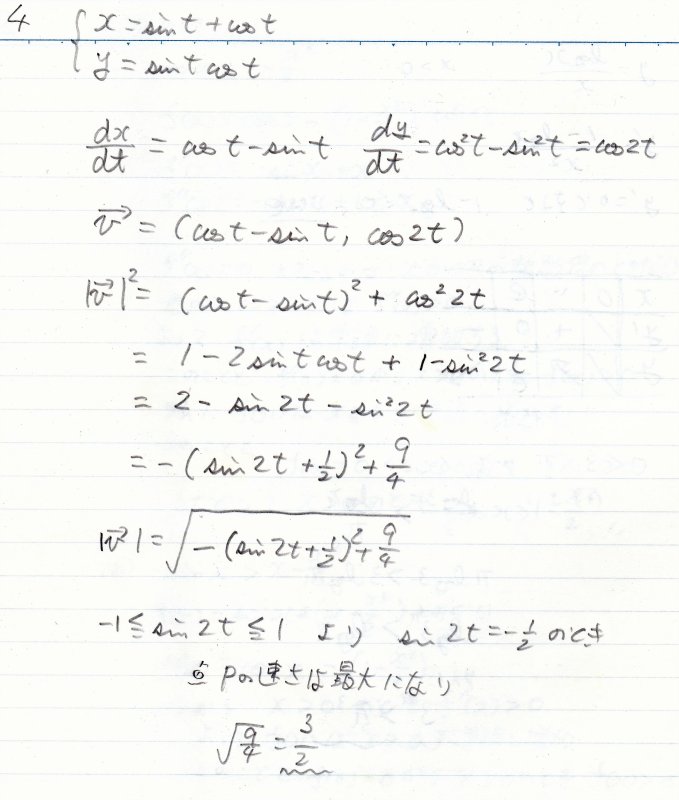 4 { x = sin t + cos t
y = sin t cos t
dx/dt = cos t - sin t dy/dt = cos²t - sin²t = cos2t
v⃗ = (cos t - sin t, cos 2t)
|v⃗|² = (cos t - sin t)² + cos² 2t
= 1 - 2 sin t cos t + 1 - sin² 2t
= 2 - sin 2t - sin² 2t
= -(sin 2t + 1/2)² + 9/4
|v⃗| = √(-(sin 2t + 1/2)² + 9/4)
-1 ≦ sin 2t ≦ 1 より sin 2t = -1/2 のとき
点Pの速さは最大になり
√(9/4) = 3/2